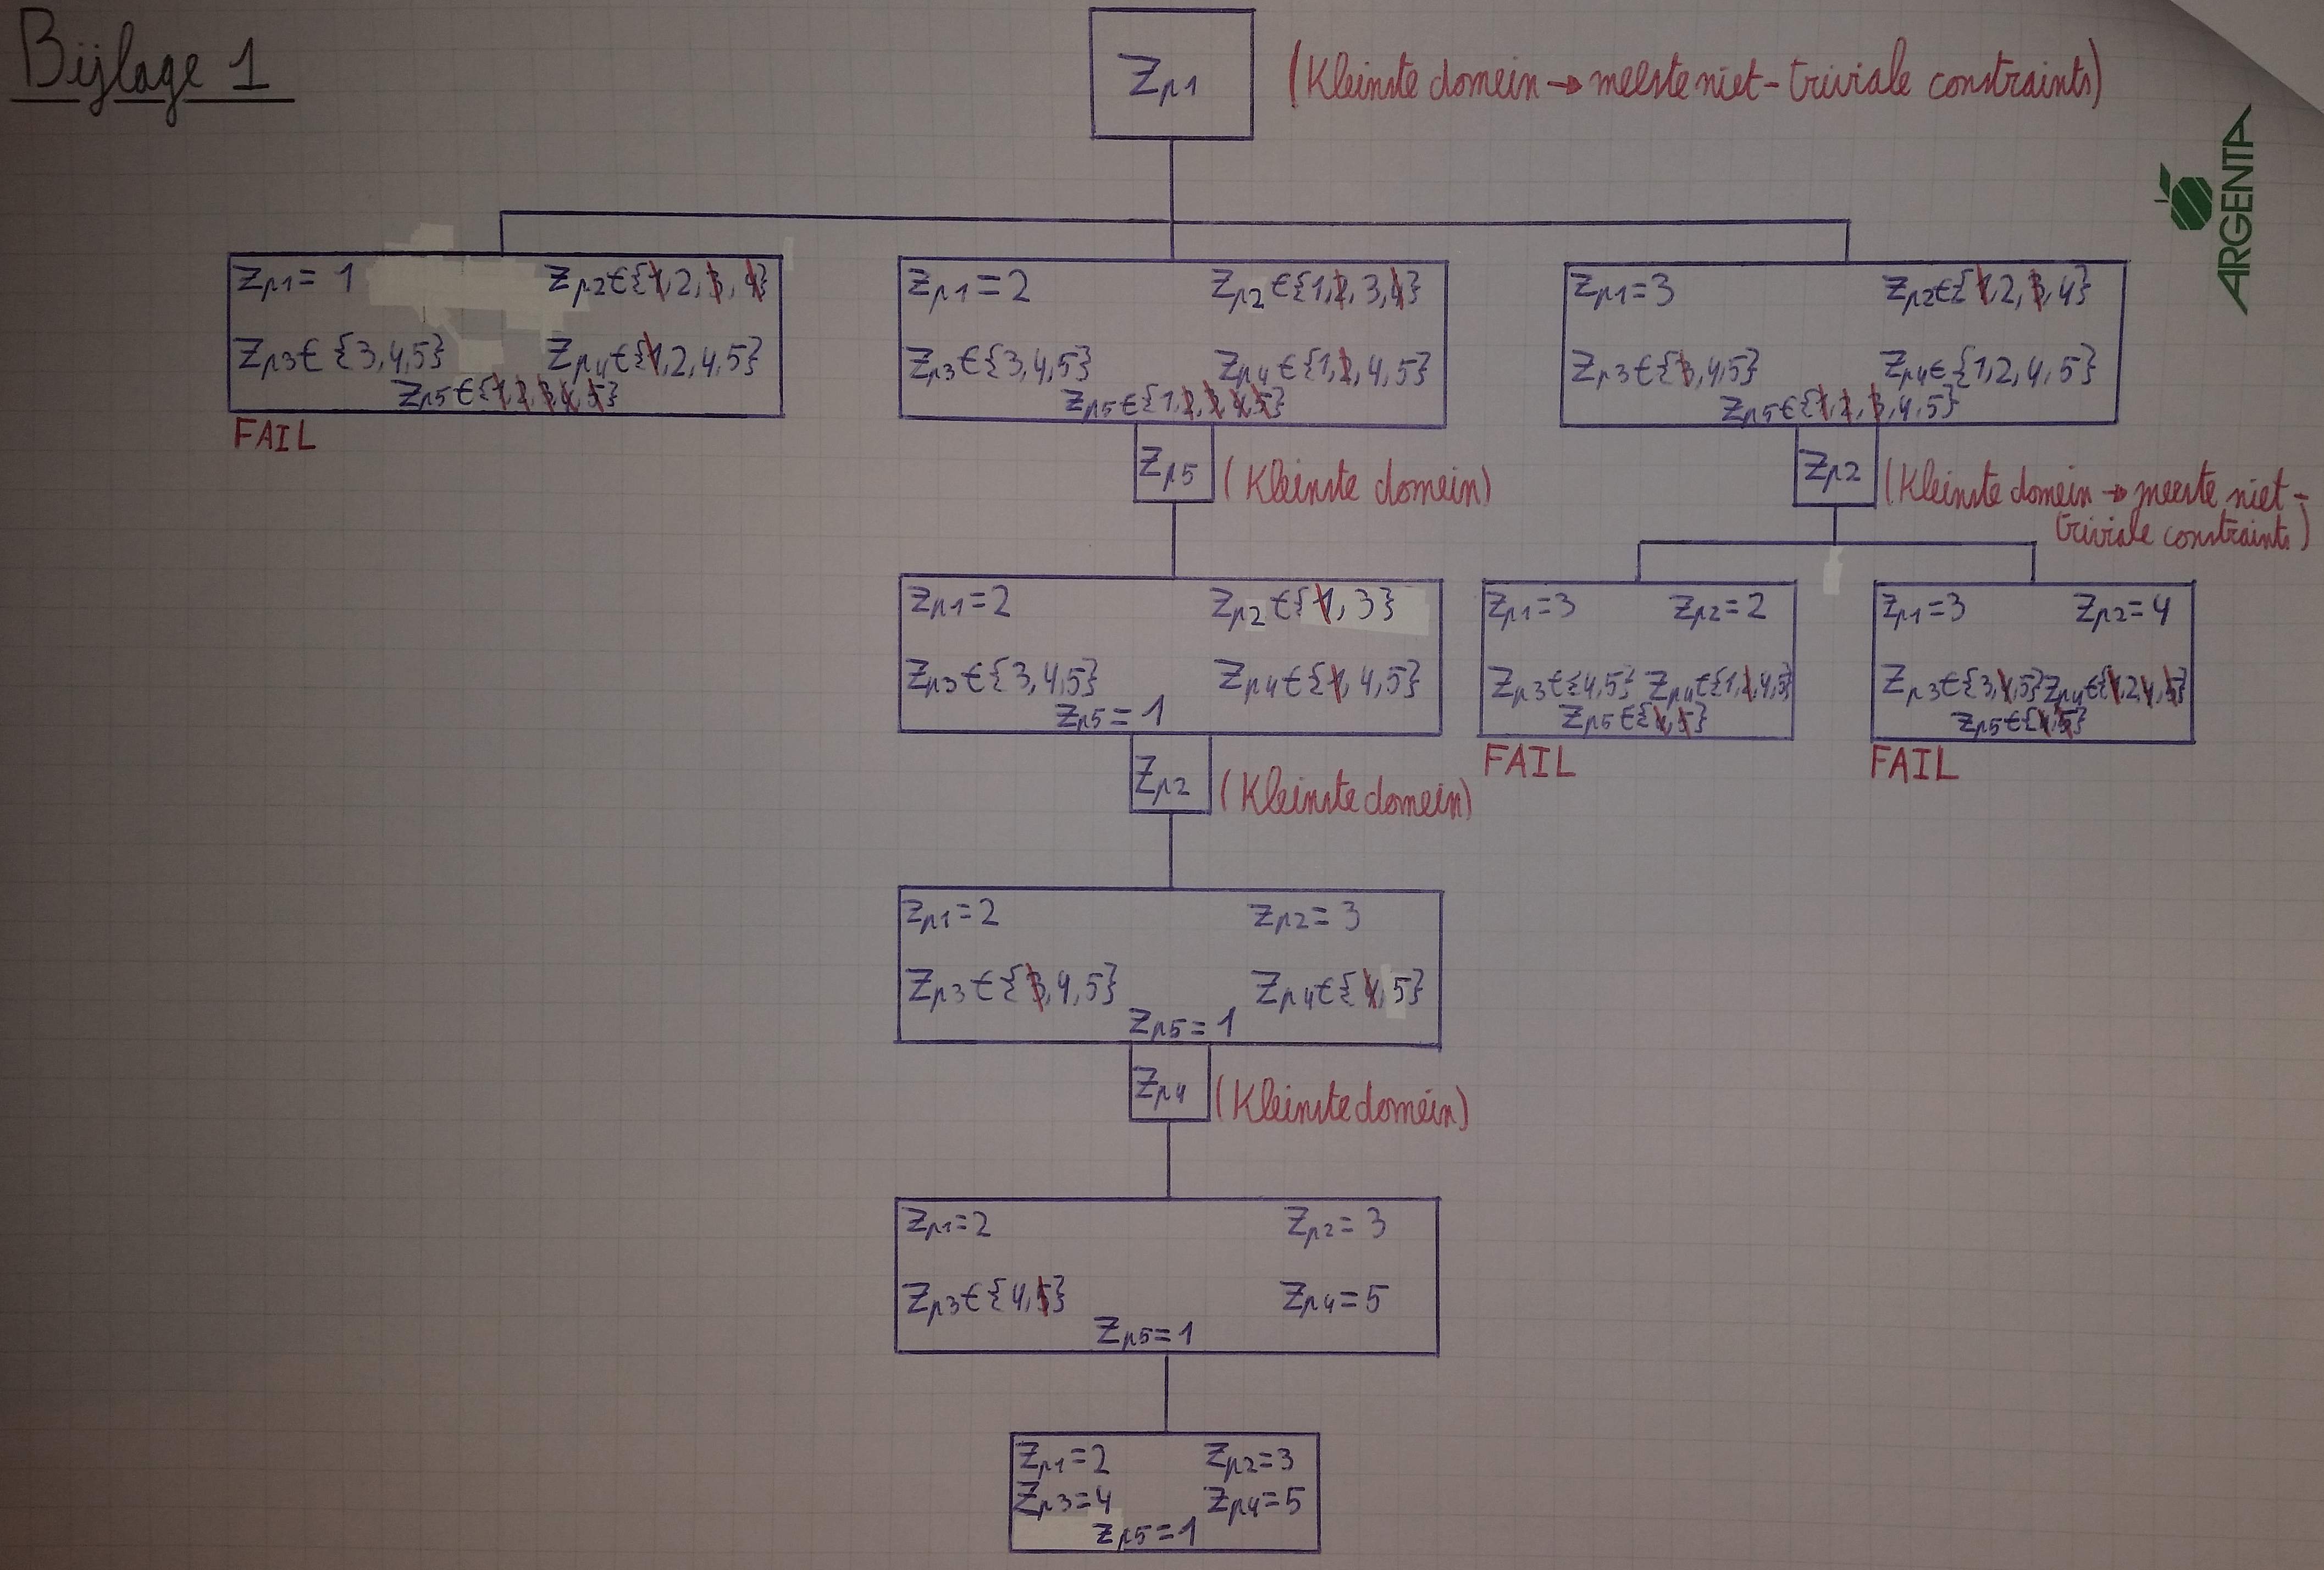 Bijlage 1
Zp1 (Kleinste domein → meeste niet-triviale constraints)
ARGENTA
Zp1 = 1 Zp2 ∈ {1, 2, 3, 4}
Zp3 ∈ {3, 4, 5} Zp4 ∈ {1, 2, 4, 5}
Zp5 ∈ {1, 2, 3, 4, 5}
FAIL
Zp1 = 2 Zp2 ∈ {1, 2, 3, 4}
Zp3 ∈ {3, 4, 5} Zp4 ∈ {1, 2, 4, 5}
Zp5 ∈ {1, 2, 3, 4, 5}
Zp1 = 3 Zp2 ∈ {1, 2, 3, 4}
Zp3 ∈ {3, 4, 5} Zp4 ∈ {1, 2, 4, 5}
Zp5 ∈ {1, 2, 3, 4, 5}
Zp5 (Kleinste domein)
Zp2 (Kleinste domein → meeste niet-
triviale constraints)
Zp1 = 2 Zp2 ∈ {1, 3}
Zp3 ∈ {3, 4, 5} Zp4 ∈ {1, 4, 5}
Zp5 = 1
Zp1 = 3 Zp2 = 2
Zp3 ∈ {4, 5} Zp4 ∈ {1, 2, 4, 5}
Zp5 ∈ {4, 5}
FAIL
Zp1 = 3 Zp2 = 4
Zp3 ∈ {3, 4, 5} Zp4 ∈ {1, 2, 4, 5}
Zp5 ∈ {4, 5}
FAIL
Zp2 (Kleinste domein)
Zp1 = 2 Zp2 = 3
Zp3 ∈ {3, 4, 5} Zp4 ∈ {4, 5}
Zp5 = 1
Zp4 (Kleinste domein)
Zp1 = 2 Zp2 = 3
Zp3 ∈ {4, 5} Zp4 = 5
Zp5 = 1
Zp1 = 2 Zp2 = 3
Zp3 = 4 Zp4 = 5
Zp5 = 1